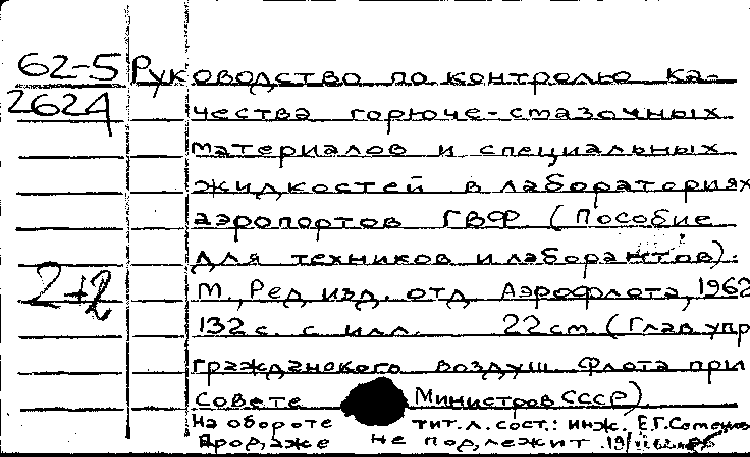 62-5 Руководство по контролю ка-
2624 чества горюче-смазочных
материалов и специальных
жидкостей в лабораториях
аэропортов ГВФ (Пособие
для техников и лаборантов).
2+2 М., Ред. изд. отд. Аэрофлота, 1962
132 с. с илл. 22 см. (Глав. упр
гражданского воздуш. флота при
Совете Министров СССР).
На обороте тит. л. сост.: инж. Е.Г.
Продаже не подлежит.